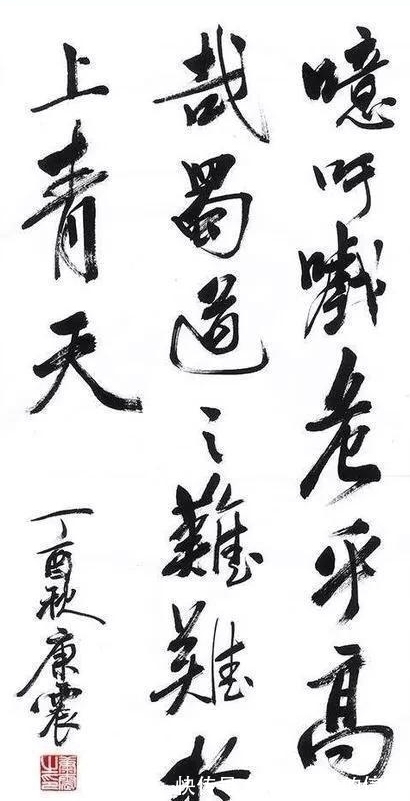 噫吁嚱危乎高
哉蜀道之難難於
上青天
丁酉秋康震
康震之印